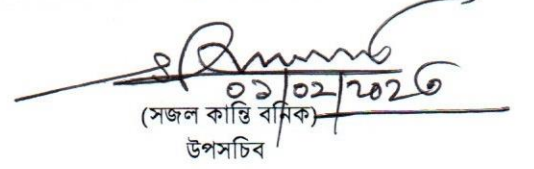 ০১/০২/২০২৩
(সজল কান্তি বনিক)
উপসচিব